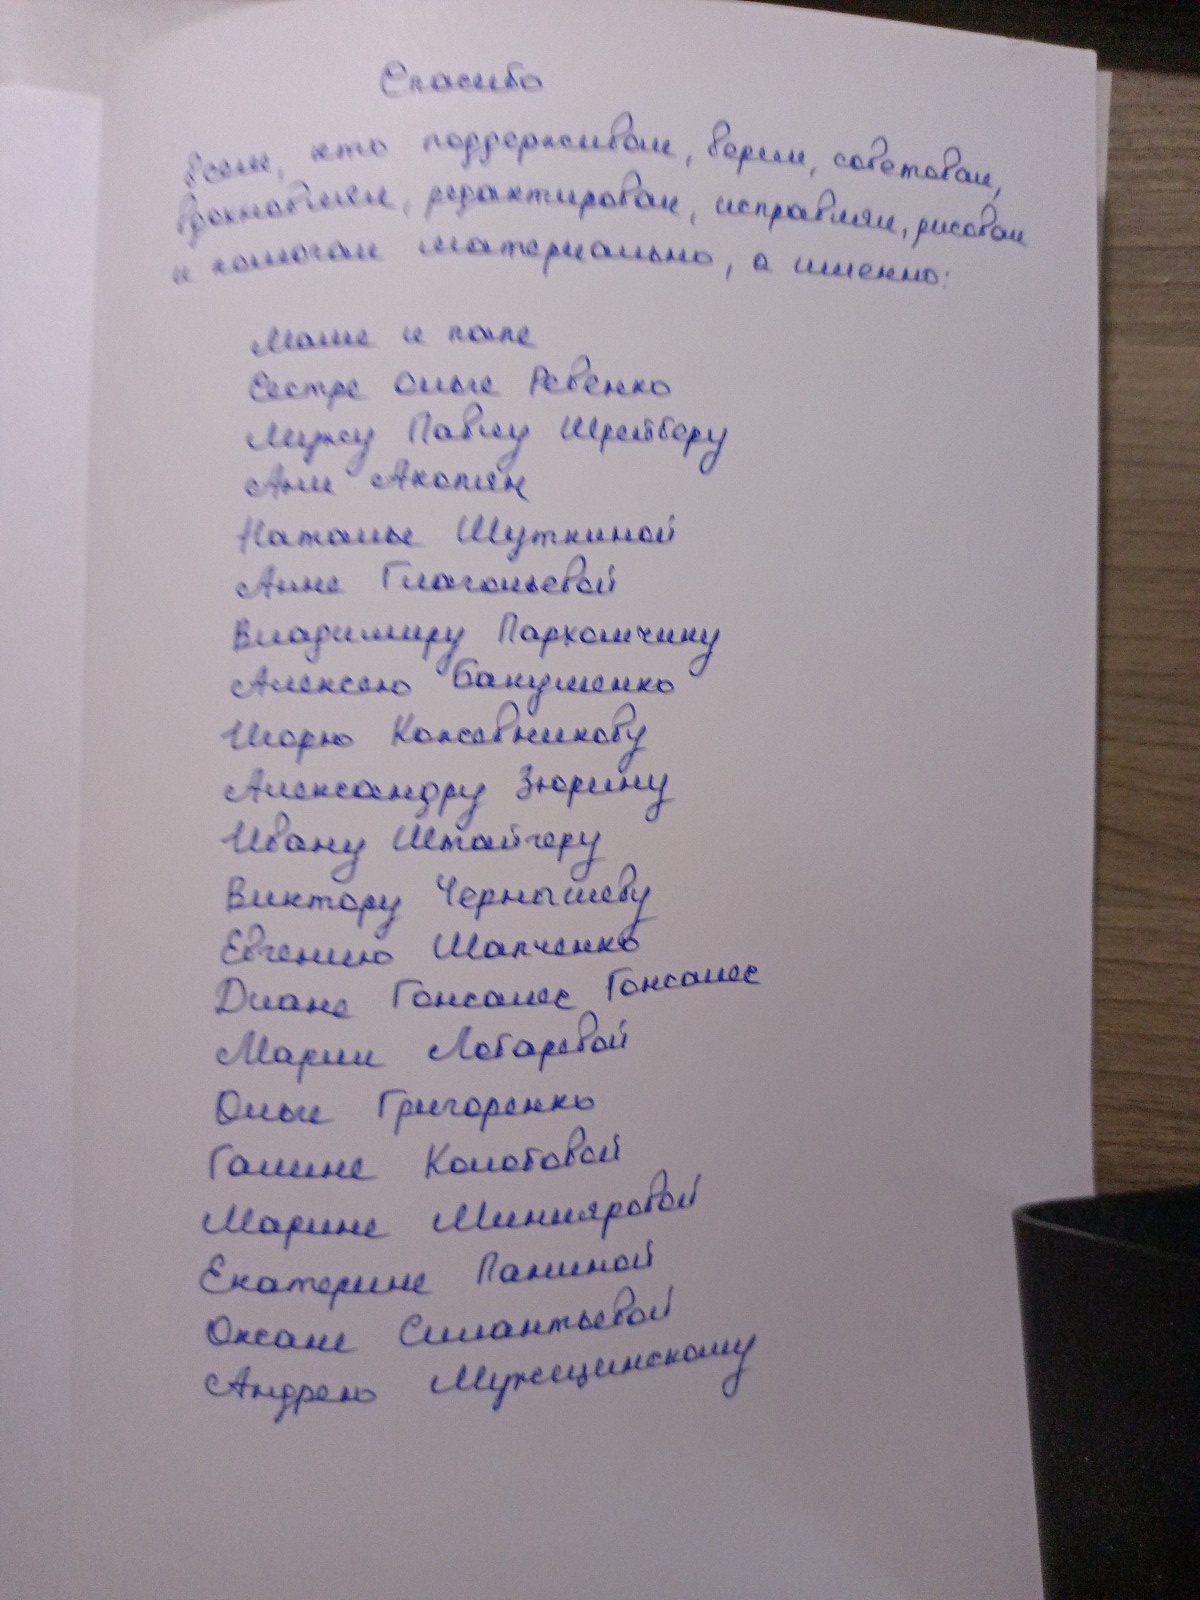 Спасибо
всем, кто поддерживал, верил, советовал,
вдохновлял, редактировал, исправлял, рисовал
и помогал материально, а именно:
Маме и папе
Сестре Ольге Ревенко
Мужу Павлу Шрейберу
Ани Акопян
Наталье Шуткиной
Анне Глагольевой
Владимиру Пархомчику
Алексею Бакушенко
Игорю Кожевникову
Александру Зюрину
Ивану Штайгеру
Виктору Чернышеву
Евгению Шапченко
Диане Гонсалес Гонсалес
Марии Лобаревой
Ольге Григоренко
Галине Колобовой
Марине Минияровой
Екатерине Паниной
Оксане Силантьевой
Андрею Мужщинскому